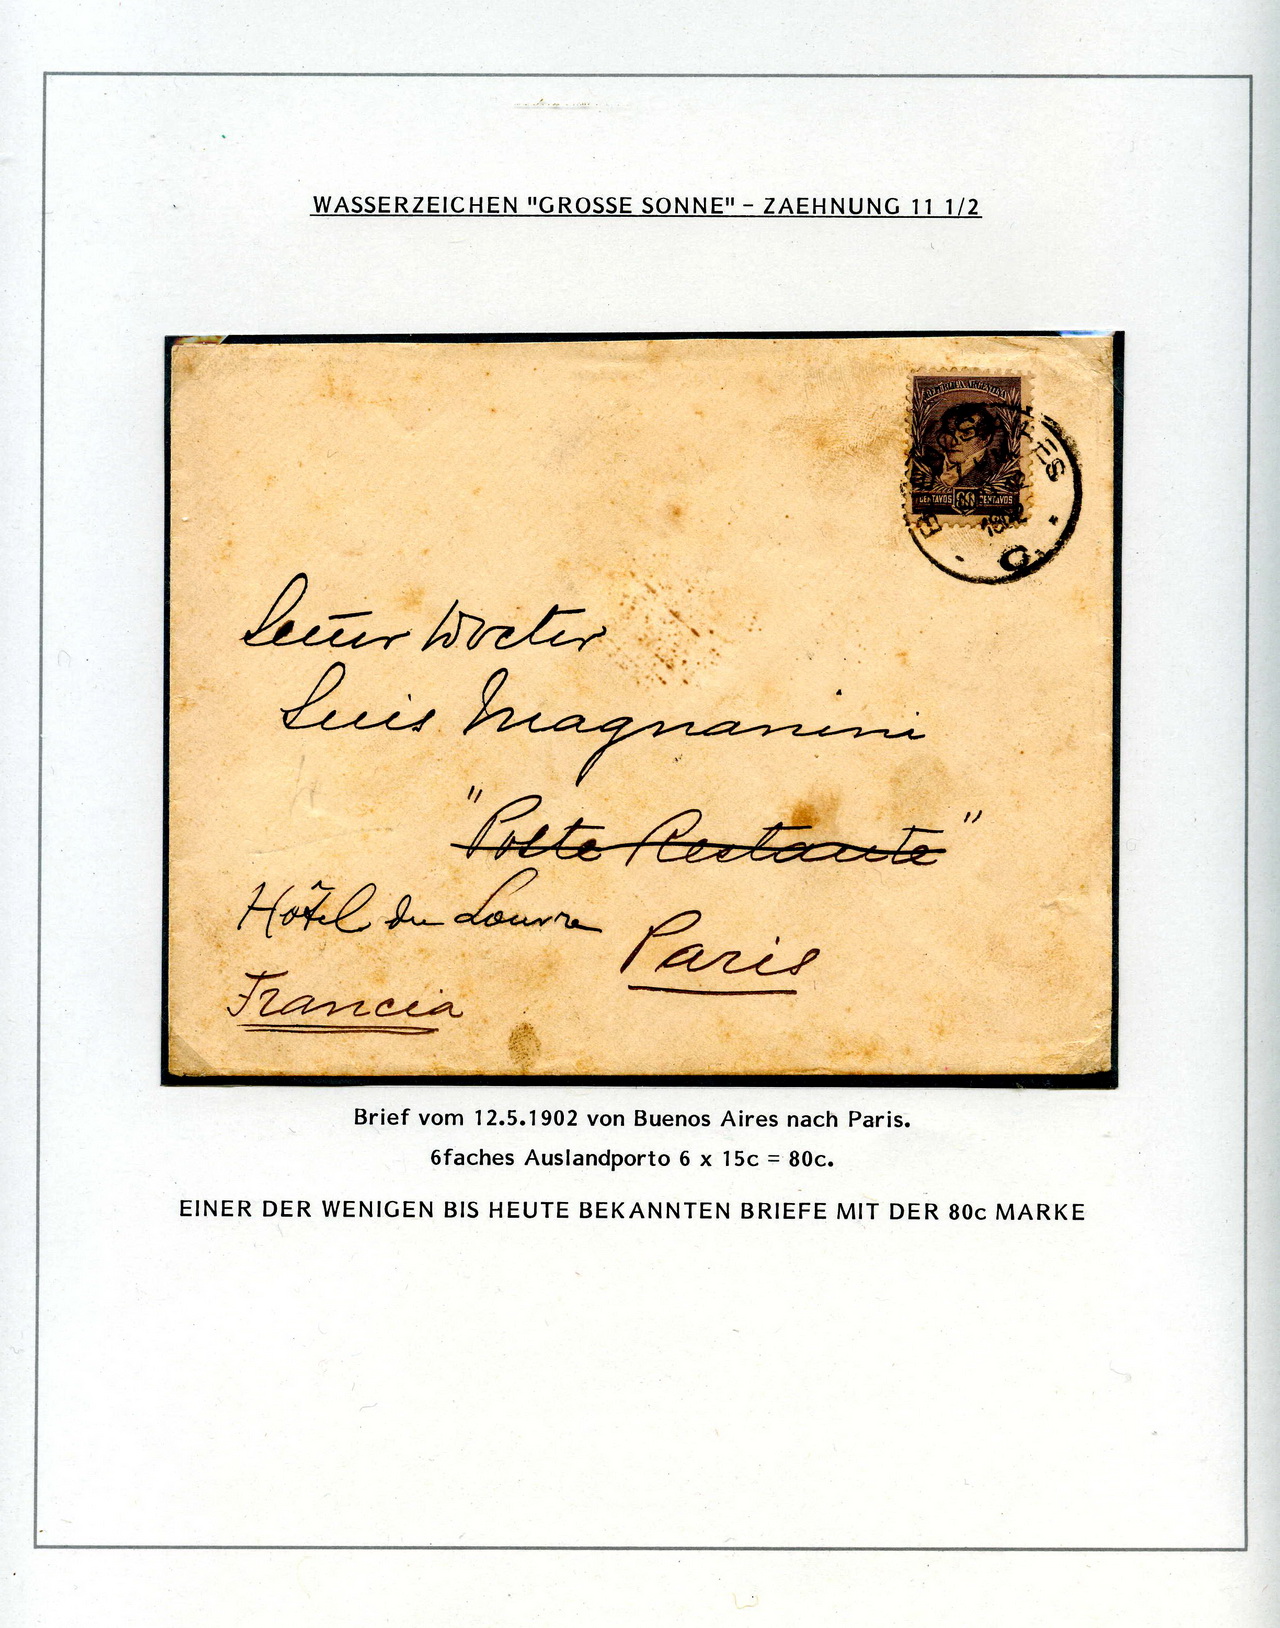 WASSERZEICHEN "GROSSE SONNE" - ZAEHNUNG 11 1/2
REPUBLICA ARGENTINA
CENTAVOS CENTAVOS
Señor Doctor
Luis Magnanini
"Poste Restante"
Hôtel du Louvre
Paris
Francia
Brief vom 12.5.1902 von Buenos Aires nach Paris.
6faches Auslandporto 6 x 15c = 80c.
EINER DER WENIGEN BIS HEUTE BEKANNTEN BRIEFE MIT DER 80c MARKE